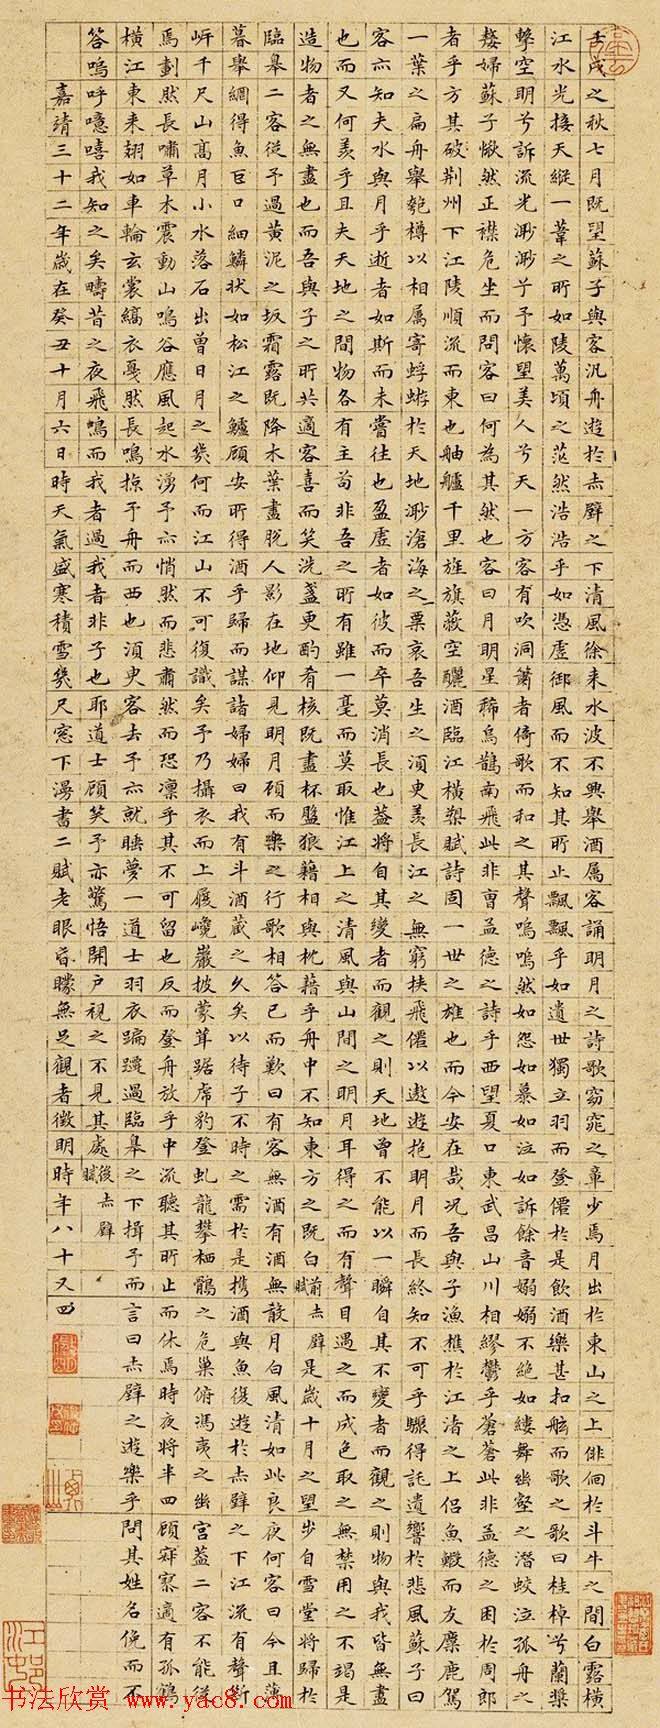 壬戌之秋七月既望蘇子與客汎舟遊於赤壁之下清風徐來水波不興舉酒属客誦明月之詩歌窈窕之章少焉月出於東山之上徘徊於斗牛之間白露橫
江水光接天縱一葦之所如陵萬頃之茫然浩浩乎如憑虛御風而不知其所止飄飄乎如遺世獨立羽而登僊於是飲酒樂甚扣舷而歌之歌曰桂棹兮蘭槳
擊空明兮訴流光渺渺兮予懷望美人兮天一方客有吹洞簫者倚歌而和之其聲嗚嗚然如怨如慕如泣如訴餘音嫋嫋不絕如縷舞幽壑之潛蛟泣孤舟之
嫠婦蘇子愀然正襟危坐而問客曰何為其然也客曰月明星稀烏鵲南飛此非曹孟德之詩乎西望夏口東武昌山川相繆鬱乎蒼蒼此非孟德之困於周郎
者乎方其破荊州下江陵順流而東也舳艫千里旌旗蔽空釃酒臨江橫槊賦詩固一世之雄也而今安在哉況吾與子漁樵於江渚之上侶魚鰕而友麋鹿駕
一葉之扁舟舉匏樽以相属寄蜉蝣於天地渺滄海之一粟哀吾生之須臾羨長江之無窮挾飛僊以遨遊抱明月而長終知不可乎驟得託遺響於悲風蘇子曰
客亦知夫水與月乎逝者如斯而未嘗往也盈虛者如彼而卒莫消長也蓋將自其變者而觀之則天地曾不能以一瞬自其不變者而觀之則物與我皆無盡
也而又何羨乎且夫天地之間物各有主苟非吾之所有雖一毫而莫取惟江上之清風與山間之明月耳得之而有聲目遇之而成色取之無禁用之不竭是
造物者之無盡也而吾與子之所共適客喜而笑洗盞更酌肴核既盡杯盤狼藉相與枕藉乎舟中不知東方之既白前赤壁賦是歲十月之望步自雪堂將歸於
臨皋二客從予過黃泥之坂霜露既降木葉盡脫人影在地仰見明月顧而樂之行歌相答已而歎曰有客無酒有酒無殽月白風清如此良夜何客曰今且薄
暮舉網得魚巨口細鱗狀如松江之鱸顧安所得酒乎歸而謀諸婦婦曰我有斗酒藏之久矣以待子不時之需於是攜酒與魚復遊於赤壁之下江流有聲斷
岍千尺山高月小水落石出曾日月之幾何而江山不可復識矣予乃攝衣而上履巉巖披蒙茸踞虎豹登虬龍攀栖鶻之危巢俯馮夷之幽宮蓋二客不能從
焉劃然長嘯草木震動山鳴谷應風起水湧予亦悄然而悲肅然而恐凜乎其不可留也反而登舟放乎中流聽其所止而休焉時夜將半四顧寂寥適有孤鶴
橫江東來翅如車輪玄裳縞衣戛然長鳴掠予舟而西也須臾客去予亦就睡夢一道士羽衣蹁躚過臨皋之下揖予而言曰赤壁之遊樂乎問其姓名俛而不
答嗚呼噫嘻我知之矣疇昔之夜飛鳴而我者過我者非子也耶道士顧笑予亦驚悟開戶視之不見其處後赤壁賦
嘉靖三十二年歲在癸丑十月六日時天氣盛寒積雪幾尺窓下漫書二賦老眼昏矇無足觀者徵明時年八十又四
书法欣赏 www.yac8.com